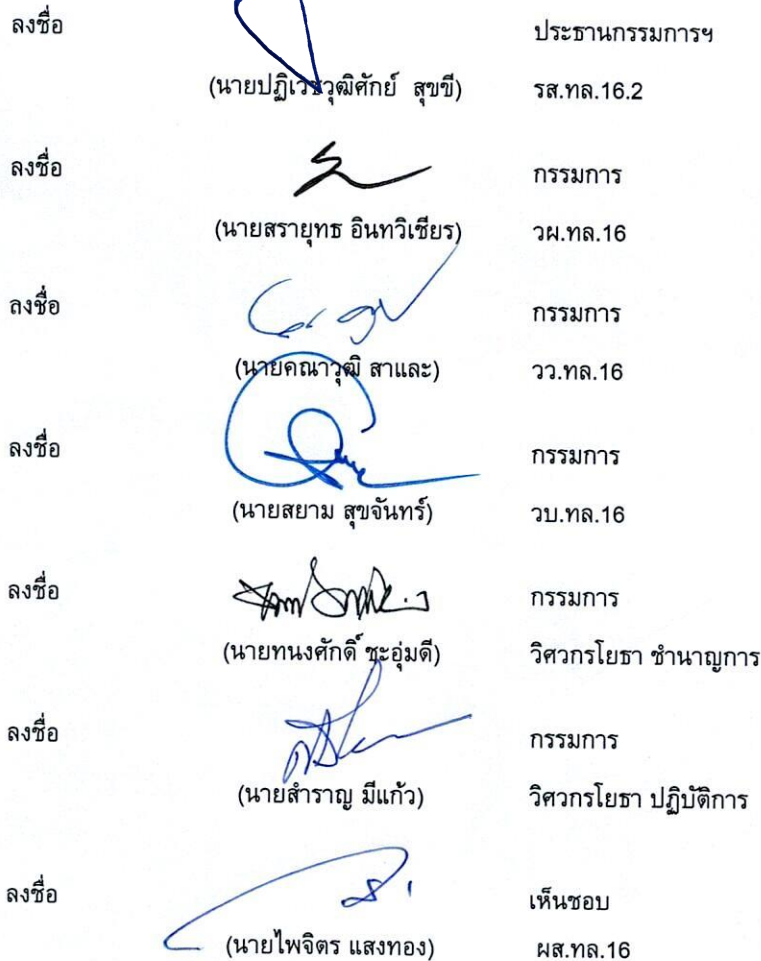 ลงชื่อ ประธานกรรมการฯ
(นายปฏิเวชวุฒิศักย์ สุขขี) รส.ทล.16.2
ลงชื่อ กรรมการ
(นายสรายุทธ อินทวิเชียร) วผ.ทล.16
ลงชื่อ กรรมการ
(นายคณาวุฒิ สาและ) วว.ทล.16
ลงชื่อ กรรมการ
(นายสยาม สุขจันทร์) วบ.ทล.16
ลงชื่อ กรรมการ
(นายทนงศักดิ์ ชะอุ่มดี) วิศวกรโยธา ชำนาญการ
ลงชื่อ กรรมการ
(นายสำราญ มีแก้ว) วิศวกรโยธา ปฏิบัติการ
ลงชื่อ เห็นชอบ
(นายไพจิตร แสงทอง) ผส.ทล.16